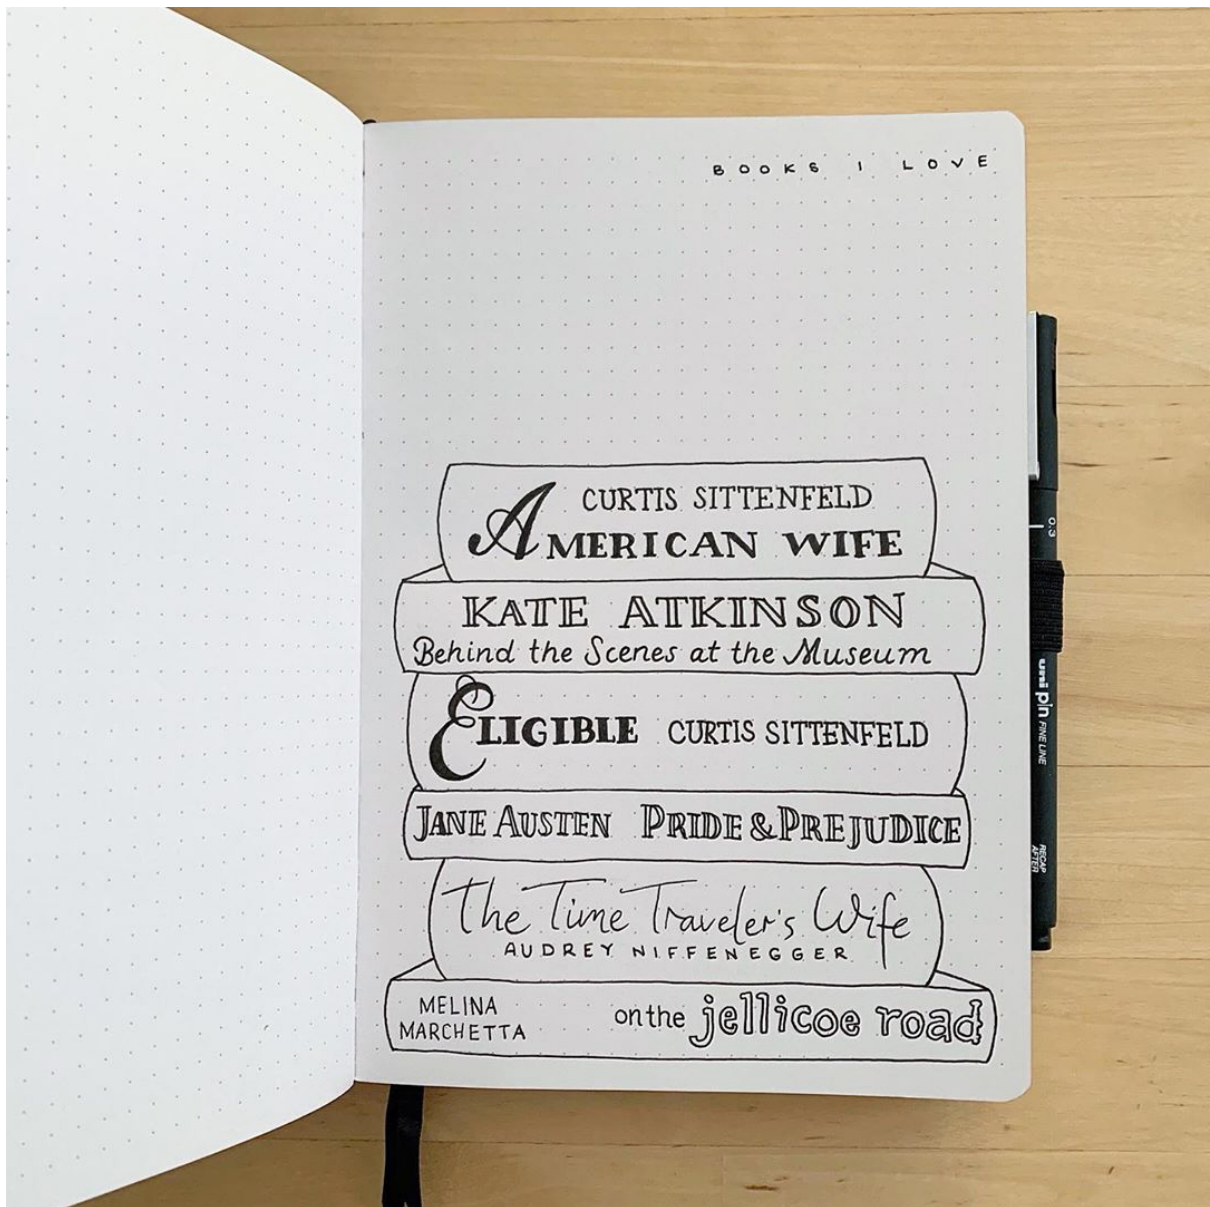 BOOKS I LOVE
CURTIS SITTENFELD
AMERICAN WIFE
KATE ATKINSON
Behind the Scenes at the Museum
ELIGIBLE CURTIS SITTENFELD
JANE AUSTEN PRIDE & PREJUDICE
The Time Traveler's Wife
AUDREY NIFFENEGGER
MELINA
MARCHETTA
on the jellicoe road
0.3
uni pin FINE LINE
RECAP
AFTER